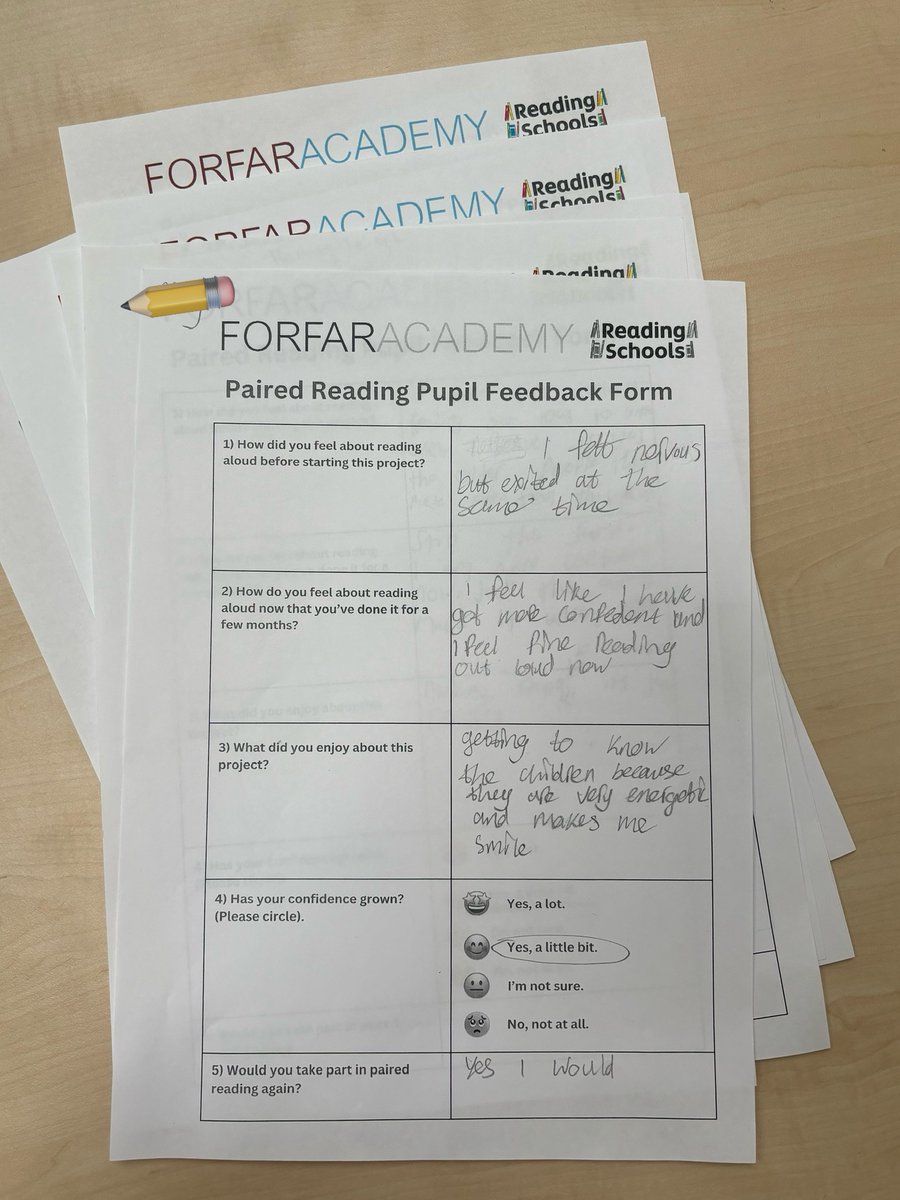 FORFARACADEMY Reading Schools
FORFARACADEMY Reading Schools
Reading
FORFARACADEMY Reading Schools
Paired Reading Pupil Feedback Form
1) How did you feel about reading
aloud before starting this project?
I felt nervous
but exited at the
same time
2) How do you feel about reading
aloud now that you've done it for a
few months?
I feel like I have
got more confedent and
I feel fine Reading
out loud now
3) What did you enjoy about this
project?
getting to know
the children because
they are very energetic
and makes me
smile
4) Has your confidence grown?
(Please circle).
Yes, a lot.
Yes, a little bit.
I'm not sure.
No, not at all.
5) Would you take part in paired
reading again?
Yes I would